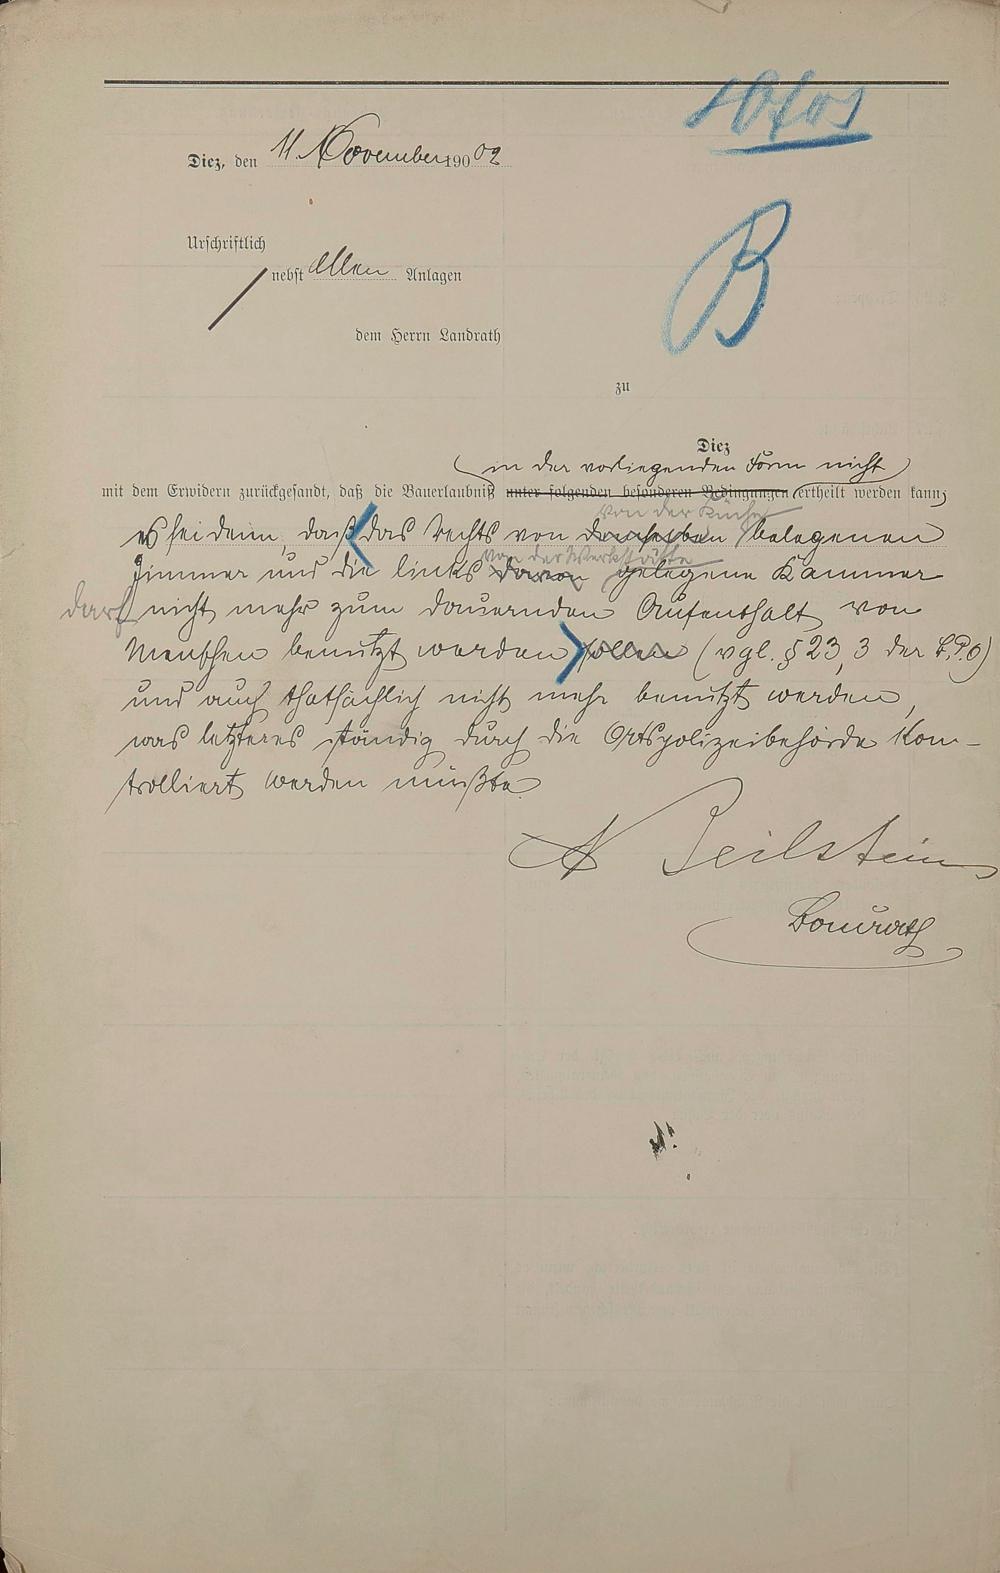 Diez, den 11. November 1902
Urschriftlich
nebst allen Anlagen
dem Herrn Landrath
B
zu
Diez
in der vorliegenden Form nicht
mit dem Erwidern zurückgesandt, daß die Bauerlaubniß unter folgenden besonderen Bedingungen ertheilt werden kann,
von der Küche
es sei denn, daß das rechts von demselben belegenen
von der Werkstätte
Zimmer und die links davon gelegene Kammer
darf nicht mehr zum dauernden Aufenthalt von
Menschen benutzt werden sollen (vgl. § 23, 3 der B.P.O)
und auch thatsächlich nicht mehr benutzt werden,
was letzteres ständig durch die Ortspolizeibehörde kon-
trolliert werden müßte.
Beilstein
Baurath